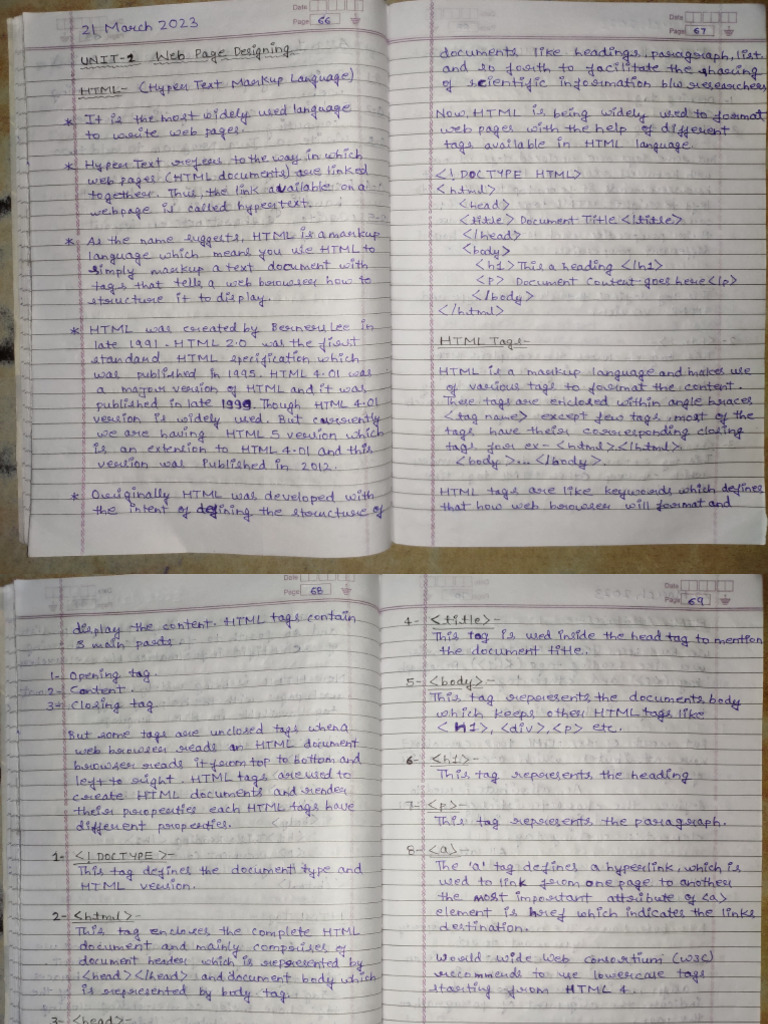 Date
Page 66
21 March 2023
UNIT-2 Web Page Designing
HTML- (Hyper Text Markup Language)
* It is the most widely used language
to write web pages.
* Hyper Text refers to the way in which
web pages (HTML documents) are linked
together. Thus, the link available on a
webpage is called hypertext.
* As the name suggests, HTML is a markup
language which means you use HTML to
simply markup a text document with
tags that tells a web browser how to
structure it to display.
* HTML was created by Berners Lee in
late 1991. HTML 2.0 was the first
standard HTML specification which
was published in 1995. HTML 4.01 was
a major version of HTML and it was
published in late 1999. Though HTML 4.01
version is widely used. But currently
we are having HTML 5 version which
is an extension to HTML 4.01 and this
version was Published in 2012.
* Originally HTML was developed with
the intent of defining the structure of
Date
Page 67
documents like headings, paragraph, list
and so forth to facilitate the sharing
of scientific information b/w researchers
Now, HTML is being widely used to format
web pages with the help of different
tags available in HTML language
<! DOCTYPE HTML>
<html>
<head>
<title> Document Title </title>
</head>
<body>
<h1> This a heading </h1>
<p> Document Content goes here <p>
</body>
</html>
HTML Tags-
HTML is a markup language and makes use
of various tags to format the content.
These tags are enclosed within angle braces
<tag name> except few tags, most of the
tags have their corresponding closing
tags for ex- <html> </html>
<body>... </body>.
HTML tags are like keywords which defines
that how web browser will format and
Date
Page 68
display the content. HTML tags contain
3 main parts.
1- Opening tag.
2- Content.
3- Closing tag
But some tags are unclosed tags when a
web browser reads an HTML document
browser reads it from top to bottom and
left to right. HTML tags are used to
create HTML documents and render
their properties each HTML tags have
different properties.
1- <! DOCTYPE>-
This tag defines the document type and
HTML version.
2- <html>-
This tag encloses the complete HTML
document and mainly comprises of
document header which is represented by
<head></head> and document body which
is represented by body tag.
3- <head>-
Date
Page 69
4- <title>-
This tag is used inside the head tag to mention
the document title.
5- <body>-
This tag represents the documents body
which keeps other HTML tags like
<h1>, <div>, <p> etc.
6- <h1>-
This tag represents the heading
7- <p>-
This tag represents the paragraph.
8- <a>
The 'a' tag defines a hyperlink, which is
used to link from one page to another
the most important attribute of <a>
element is href which indicates the links
destination.
World wide Web consortium (W3C)
recommends to use lowercase tags
starting from HTML 4.